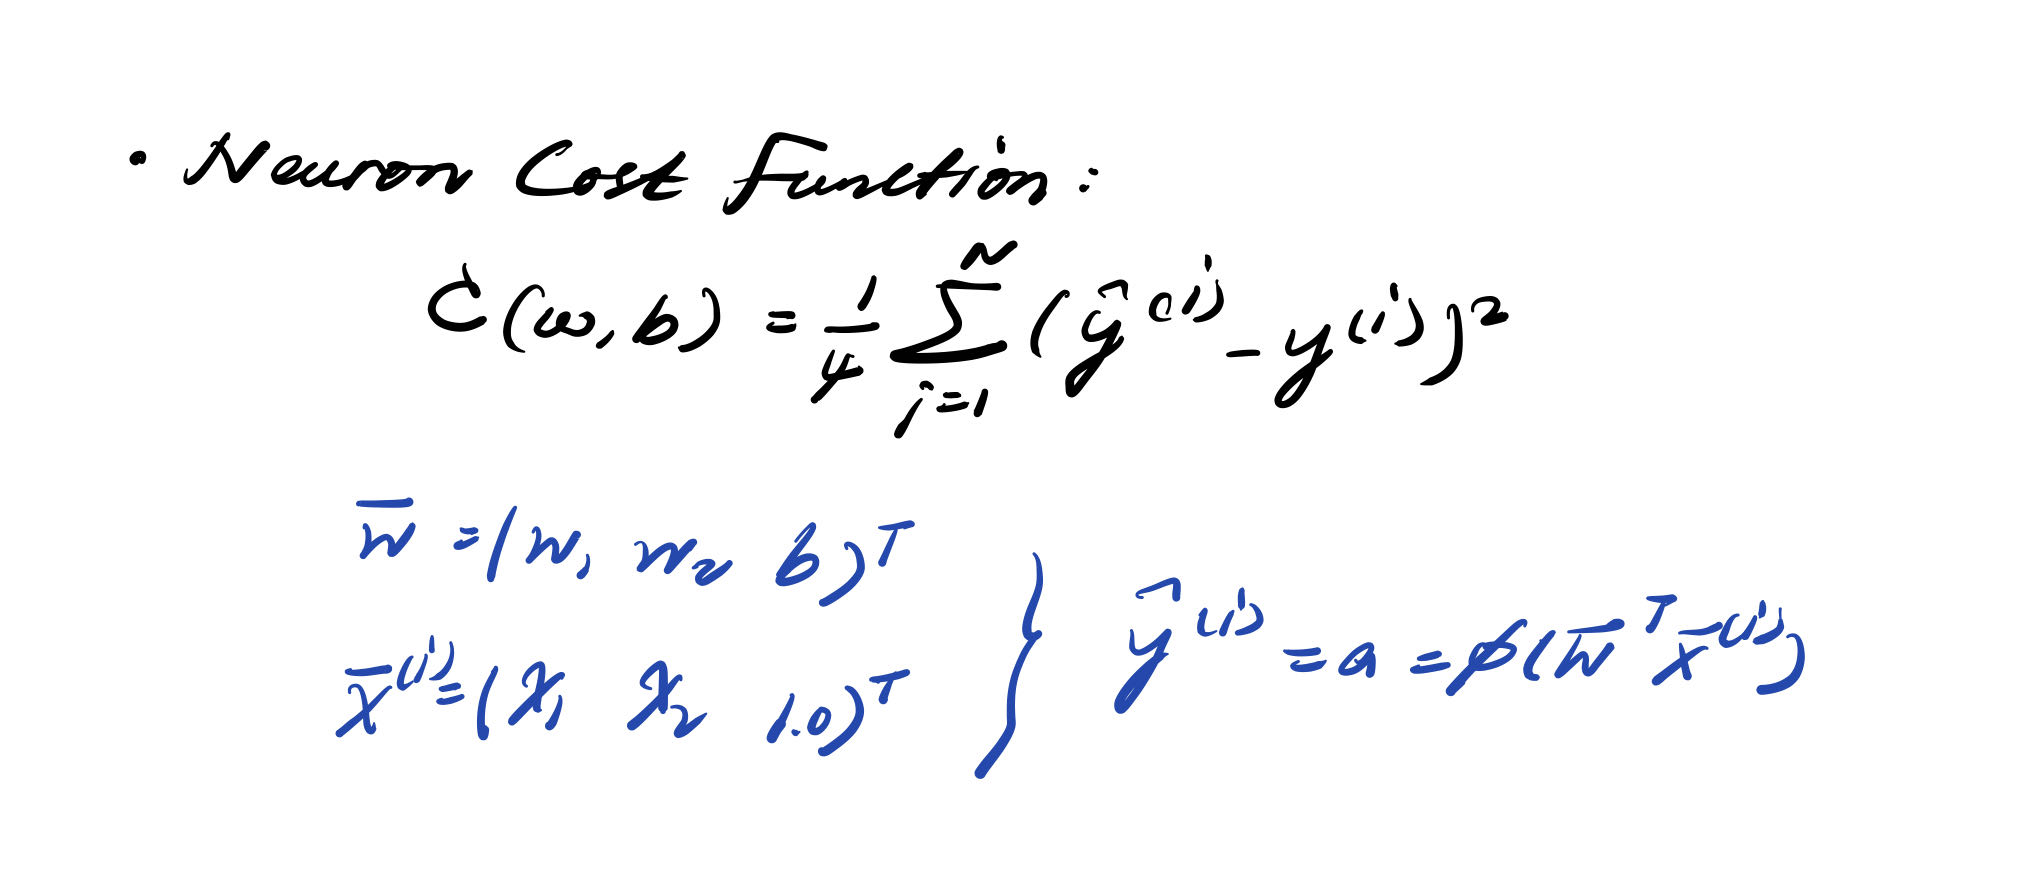 • Neuron Cost Function:
C(w, b) = 1/4 ∑_{i=1}^{N} (ŷ^{(i)} - y^{(i)})²
w̅ = (w₁ w₂ b)ᵀ
x̅^{(i)} = (x₁ x₂ 1.0)ᵀ
} ŷ^{(i)} = a = φ(w̅ᵀ x̅^{(i)})